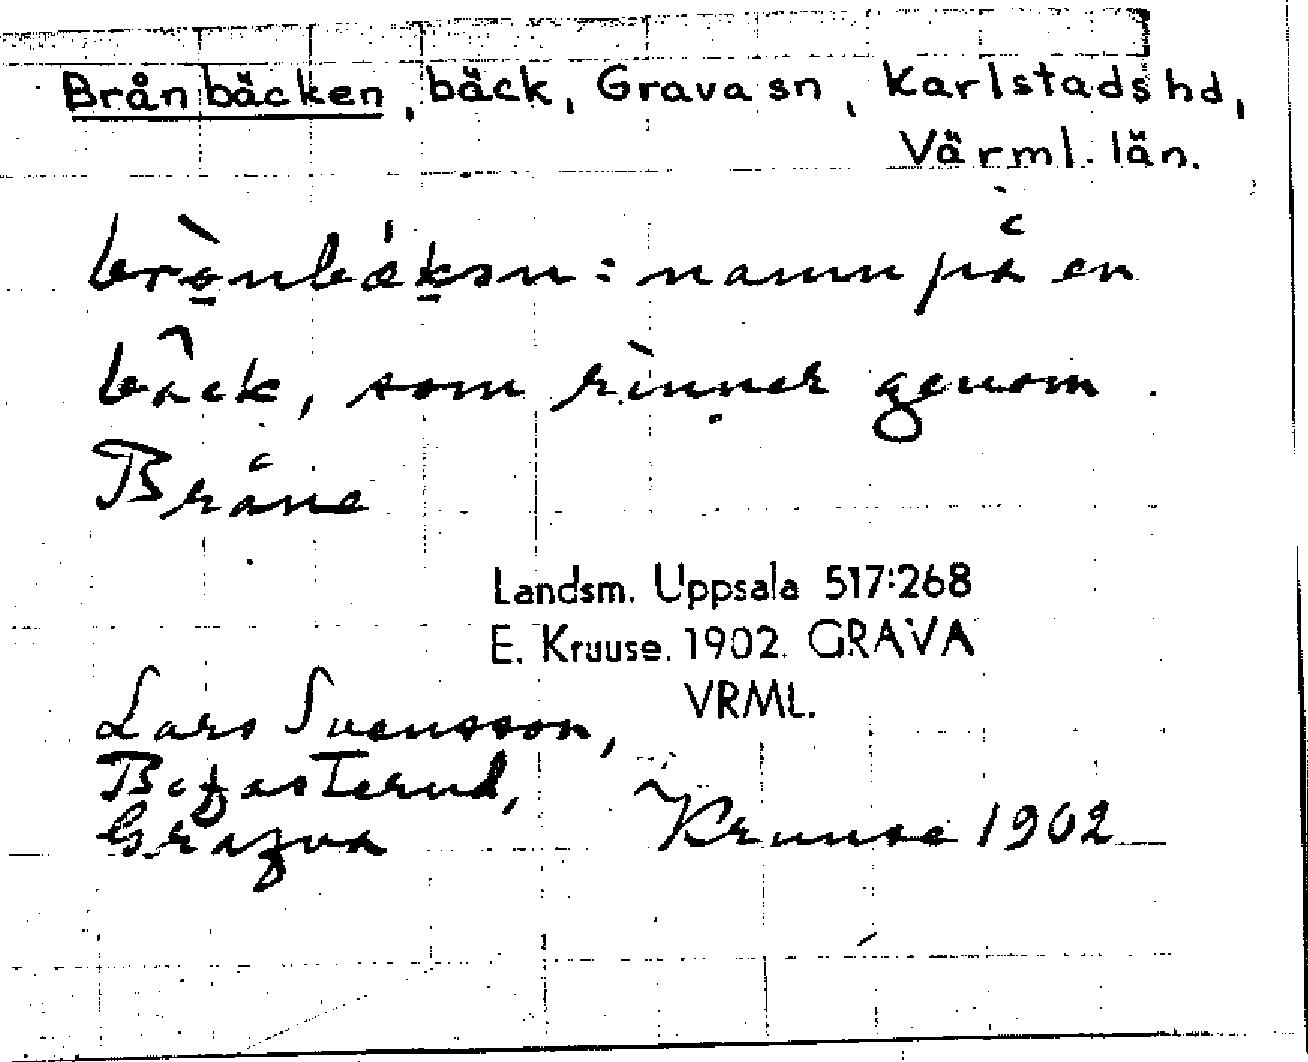 Brånbäcken, bäck, Grava sn, Karlstads hd,
Värml. län.
namn på en
bäck, som rinner genom
Bråne
Landsm. Uppsala 517:268
E. Kruuse. 1902. GRAVA
VRML.
Lars Svensson,
Kruuse 1902